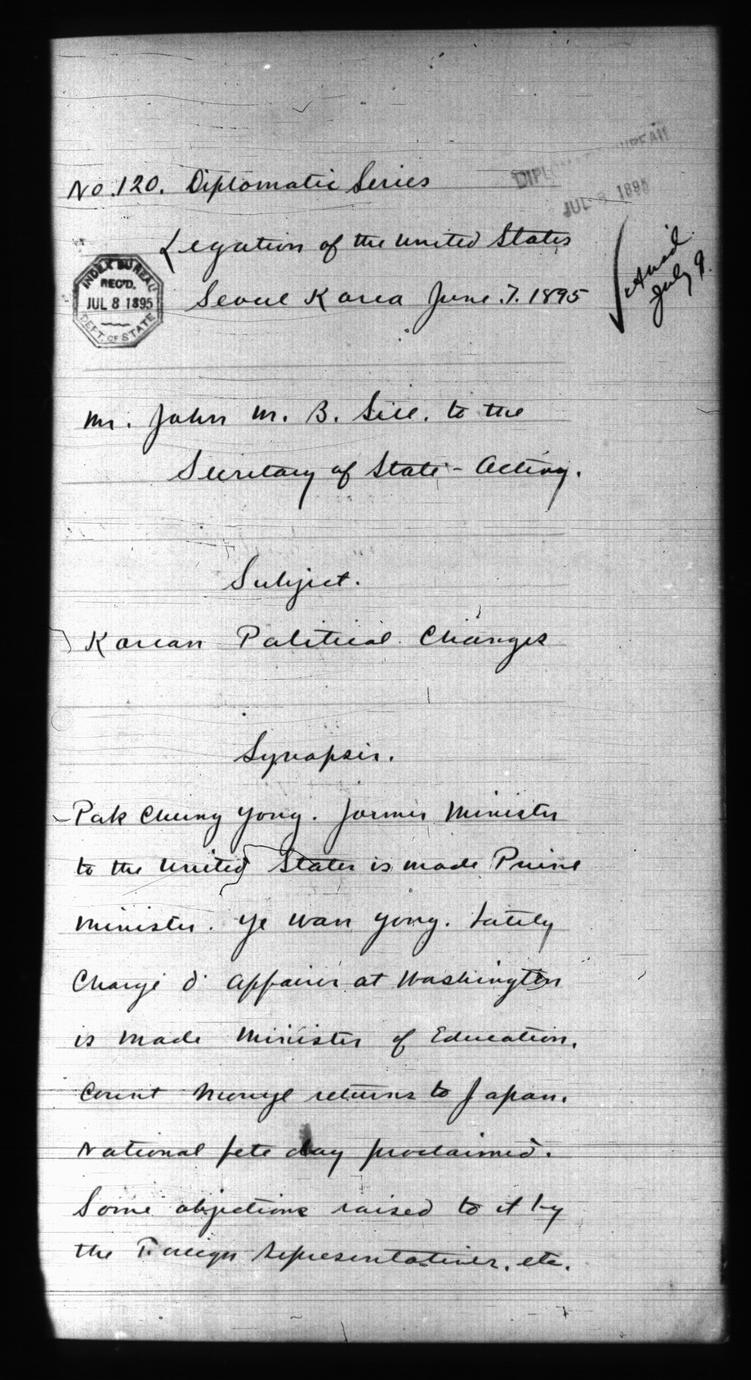 No. 120. Diplomatic Series
DIPLOMATIC BUREAU
JUL 8 1895
Legation of the United States
INDEX BUREAU
REC'D.
JUL 8 1895
DEPT. OF STATE
Seoul Korea June. 7. 1895
July 9.
Mr. John M. B. Sill. to the
Secretary of State - Acting.
Subject.
Korean Political Changes
Synopsis.
Pak Chung Yong. former Minister
to the United States is made Prime
Minister. Ye Wan Yong. lately
Chargé d' Affaires at Washington
is made Minister of Education.
Count Inouye returns to Japan.
National fete day proclaimed.
Some objections raised to it by
the Foreign Representatives. etc.